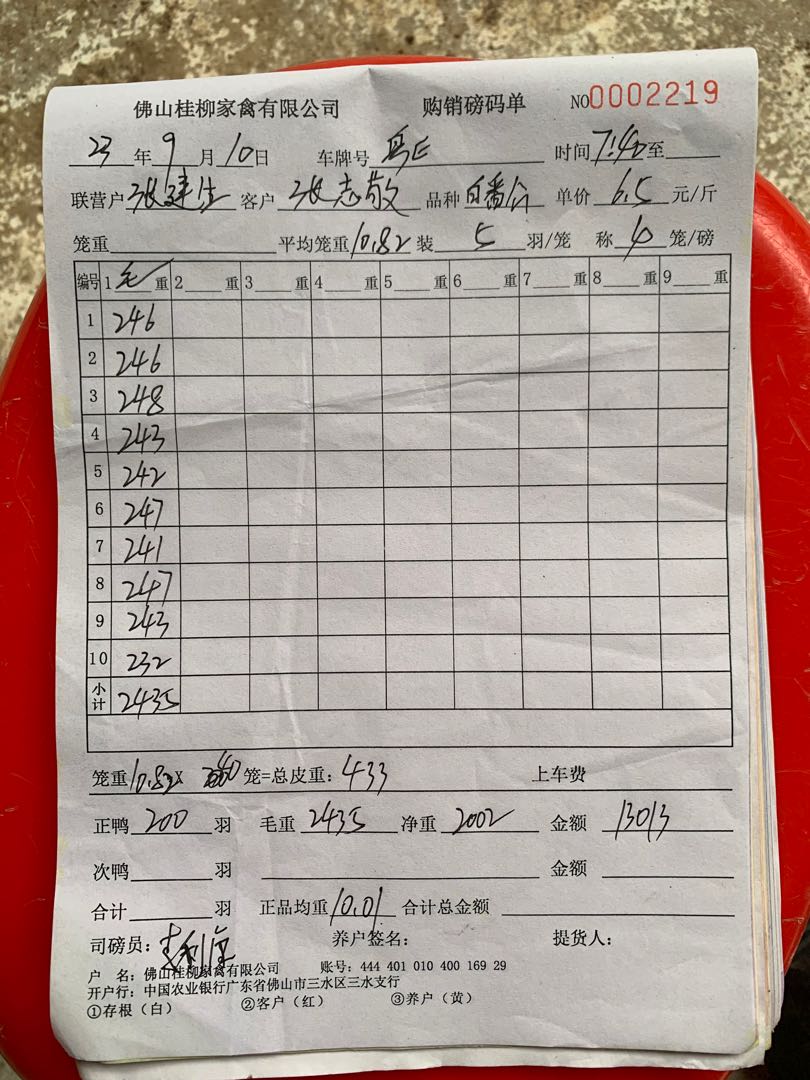 佛山桂柳家禽有限公司 购销磅码单 NO0002219
23年9月10日 车牌号 粤E 时间7:40至
联营户 张建生 客户 张志敬 品种 白番公 单价 6.5 元/斤
笼重 平均笼重10.82装 5 羽/笼 称 4 笼/磅
编号 1 毛 重 2 重 3 重 4 重 5 重 6 重 7 重 8 重 9 重
1 246
2 246
3 248
4 243
5 242
6 247
7 241
8 247
9 243
10 232
小计 2435
笼重10.82x 40笼=总皮重:433 上车费
正鸭 200 羽 毛重 2435 净重 2002 金额 13013
次鸭 羽 金额
合计 羽 正品均重10.01 合计总金额
司磅员: 养户签名: 提货人:
户 名:佛山桂柳家禽有限公司 账号:444 401 010 400 169 29
开户行:中国农业银行广东省佛山市三水区三水支行
①存根(白) ②客户(红) ③养户(黄)